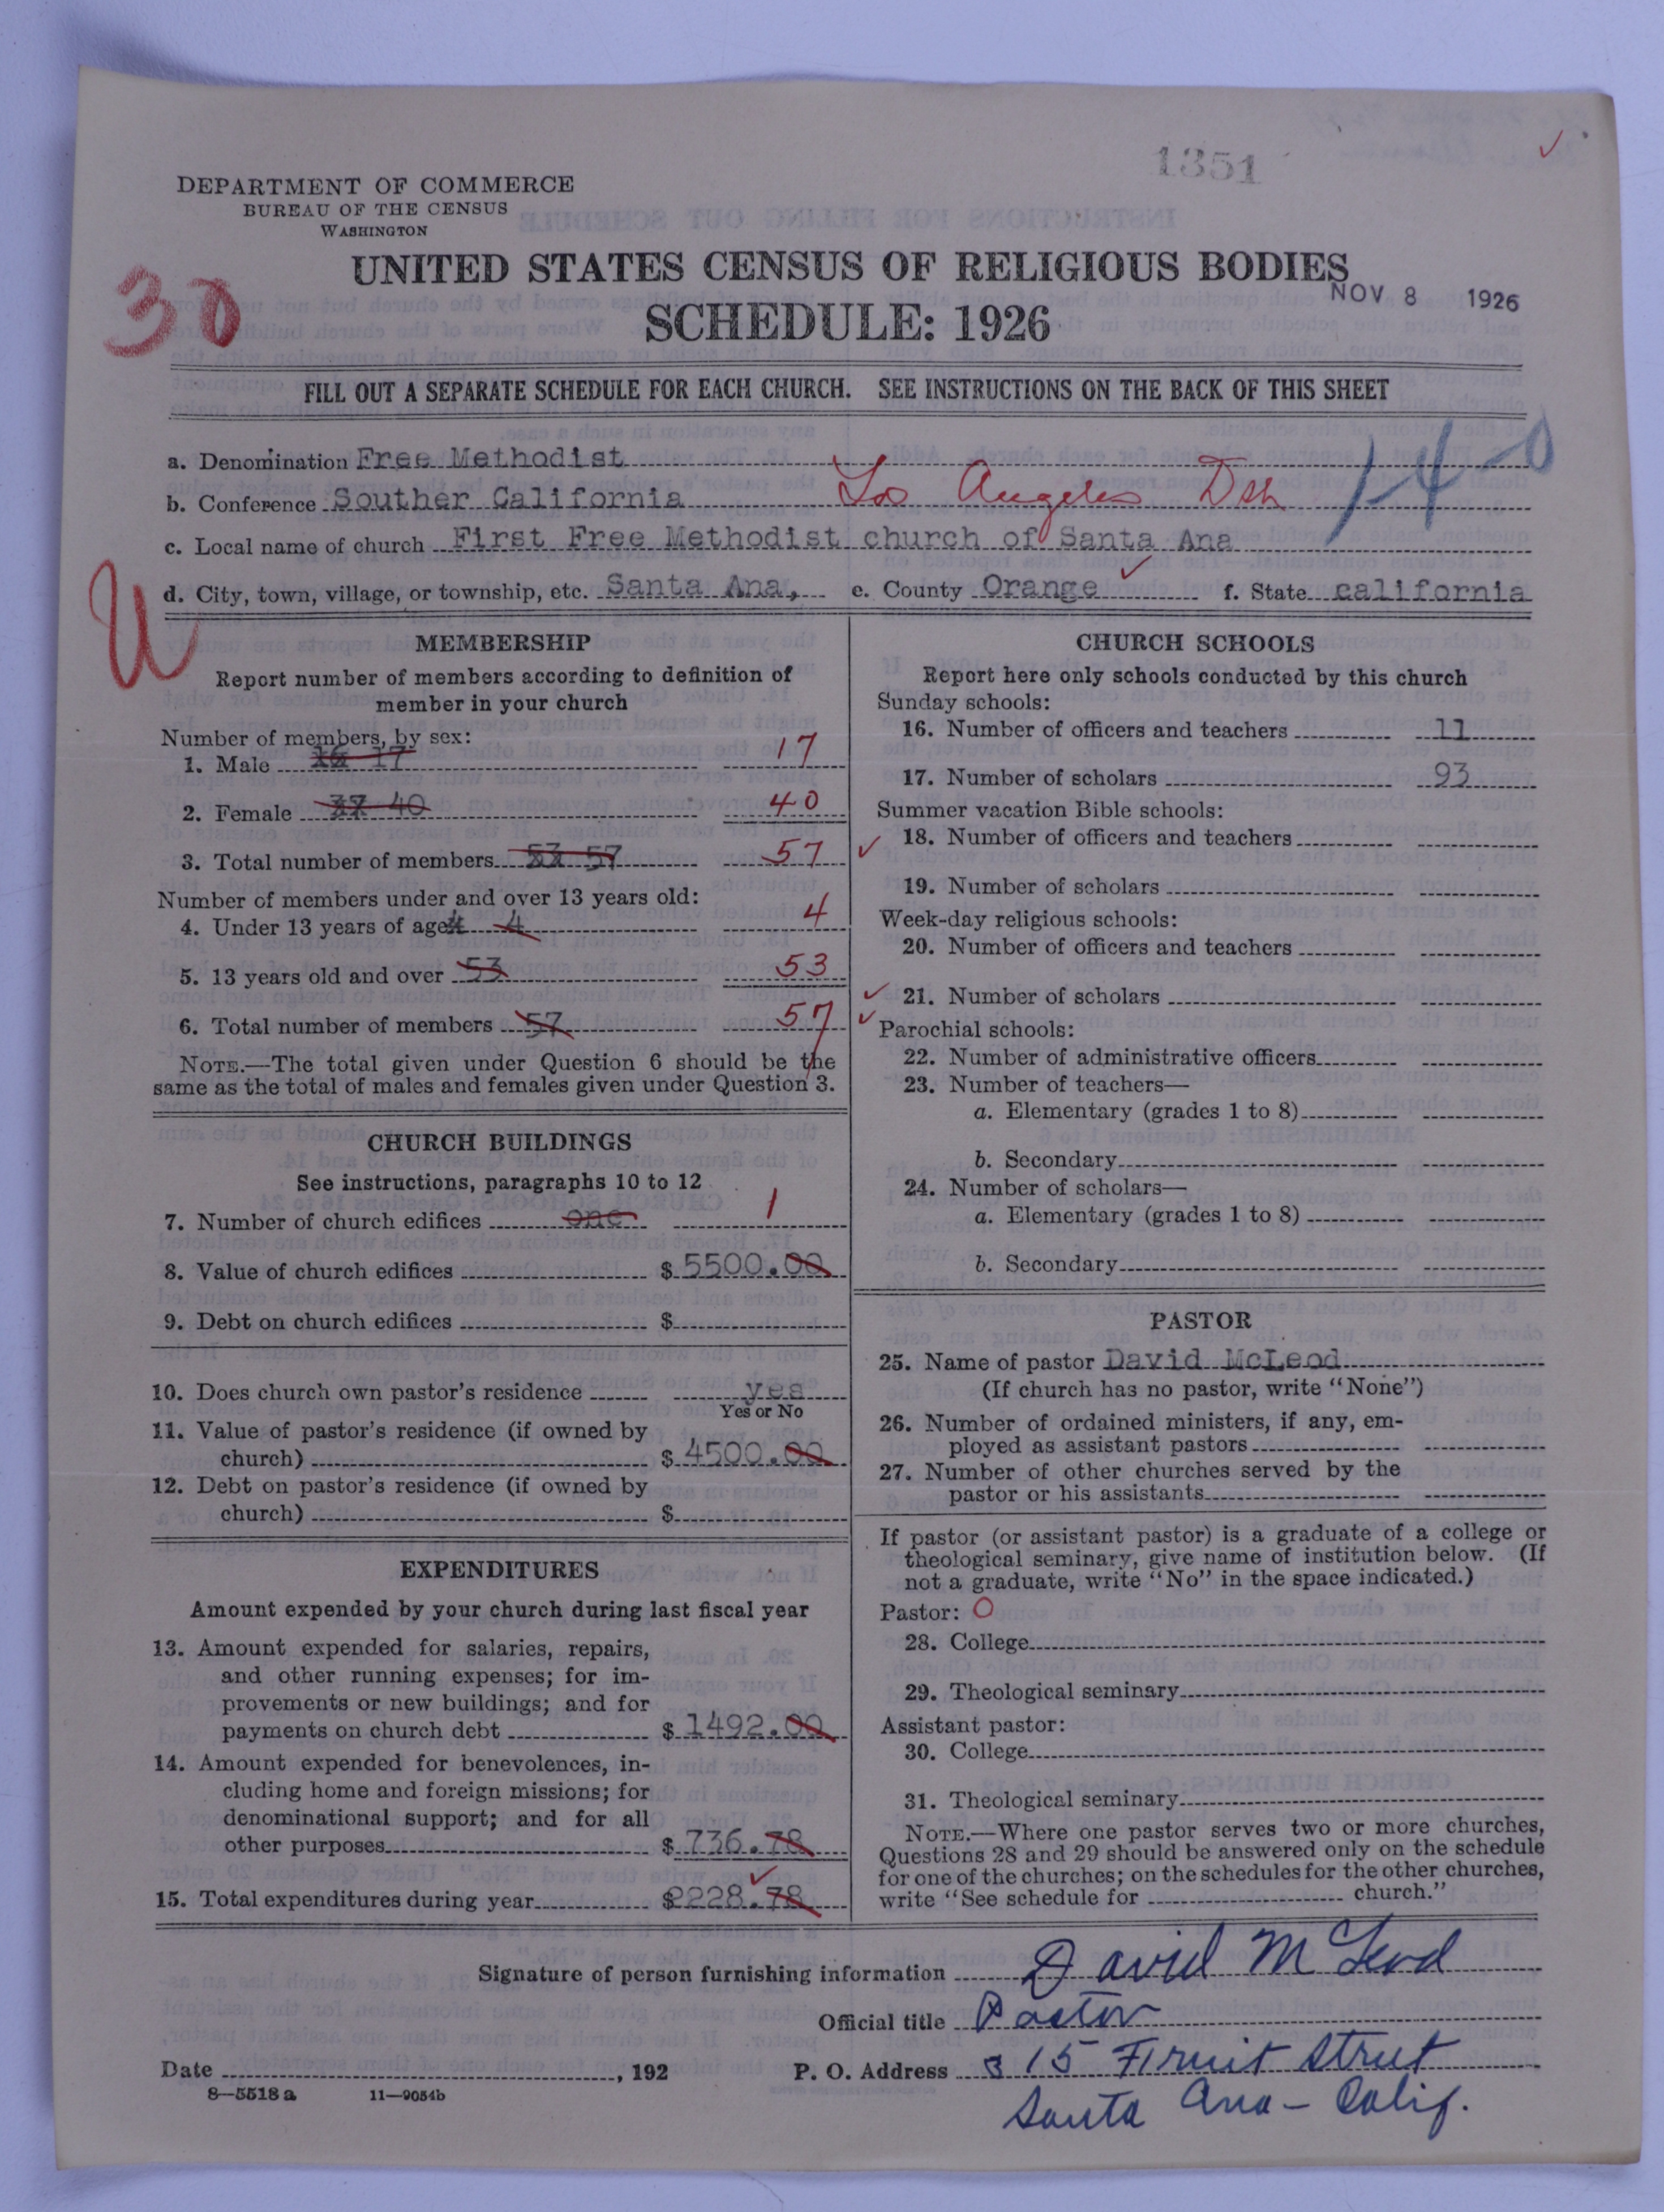 1351
DEPARTMENT OF COMMERCE
BUREAU OF THE CENSUS
WASHINGTON
UNITED STATES CENSUS OF RELIGIOUS BODIES
NOV 8 1926
SCHEDULE: 1926
30
FILL OUT A SEPARATE SCHEDULE FOR EACH CHURCH. SEE INSTRUCTIONS ON THE BACK OF THIS SHEET
a. Denomination Free Methodist
1-4-0
b. Conference Souther California Los Angeles Dsh
c. Local name of church First Free Methodist church of Santa Ana
d. City, town, village, or township, etc. Santa Ana, e. County Orange f. State california
U
MEMBERSHIP
Report number of members according to definition of
member in your church
Number of members, by sex:
1. Male 16 17 17
2. Female 37 40 40
3. Total number of members 53 57 57
Number of members under and over 13 years old:
4. Under 13 years of age 4 4 4
5. 13 years old and over 53 53
6. Total number of members 57 57
NOTE.—The total given under Question 6 should be the
same as the total of males and females given under Question 3.
CHURCH BUILDINGS
See instructions, paragraphs 10 to 12
7. Number of church edifices one 1
8. Value of church edifices $ 5500.00
9. Debt on church edifices $
10. Does church own pastor's residence yes
Yes or No
11. Value of pastor's residence (if owned by
church) $ 4500.00
12. Debt on pastor's residence (if owned by
church) $
EXPENDITURES
Amount expended by your church during last fiscal year
13. Amount expended for salaries, repairs,
and other running expenses; for im-
provements or new buildings; and for
payments on church debt $ 1492.00
14. Amount expended for benevolences, in-
cluding home and foreign missions; for
denominational support; and for all
other purposes $ 736.78
15. Total expenditures during year $2228.78
CHURCH SCHOOLS
Report here only schools conducted by this church
Sunday schools:
16. Number of officers and teachers 11
17. Number of scholars 93
Summer vacation Bible schools:
18. Number of officers and teachers
19. Number of scholars
Week-day religious schools:
20. Number of officers and teachers
21. Number of scholars
Parochial schools:
22. Number of administrative officers
23. Number of teachers—
a. Elementary (grades 1 to 8)
b. Secondary
24. Number of scholars—
a. Elementary (grades 1 to 8)
b. Secondary
PASTOR
25. Name of pastor David McLeod
(If church has no pastor, write "None")
26. Number of ordained ministers, if any, em-
ployed as assistant pastors
27. Number of other churches served by the
pastor or his assistants
If pastor (or assistant pastor) is a graduate of a college or
theological seminary, give name of institution below. (If
not a graduate, write "No" in the space indicated.)
Pastor: O
28. College
29. Theological seminary
Assistant pastor:
30. College
31. Theological seminary
NOTE.—Where one pastor serves two or more churches,
Questions 28 and 29 should be answered only on the schedule
for one of the churches; on the schedules for the other churches,
write "See schedule for church."
Signature of person furnishing information David McLeod
Official title Pastor
Date , 192 P. O. Address 315 Fruit Street
8—5518 a 11—9054b
Santa Ana - Calif.